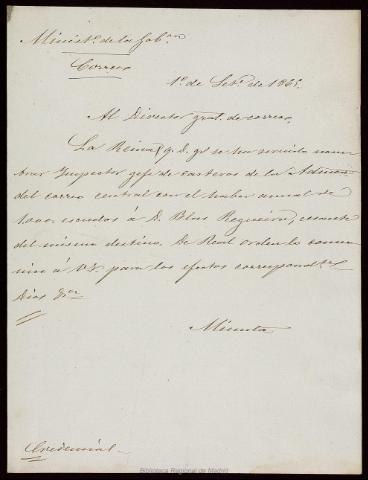 Minist.o de la Gob.on
Correos
1.o de Set.e de 1865.
Al Director gral. de correos.
La Reina (q. D. g.) se ha servido nom
brar Inspector gefe de carteros de la Admon
del correo central con el haber anual de
1000 escudos á D. Blas Regueira, cesante
del mismo destino. De Real orden lo comu
nico á V.I. para los efectos correspond.tes
Dios &.a
Minuta
Credencial
Biblioteca Regional de Madrid